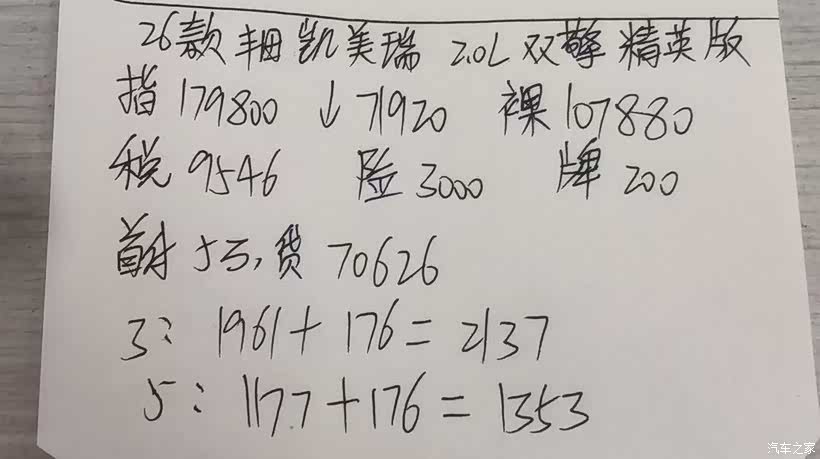 26款丰田凯美瑞 2.0L双擎精英版
指179800 ↓71920 裸107880
税9546 险3000 牌200
首付5万,贷70626
3: 1961+176=2137
5: 1177+176=1353
汽车之家